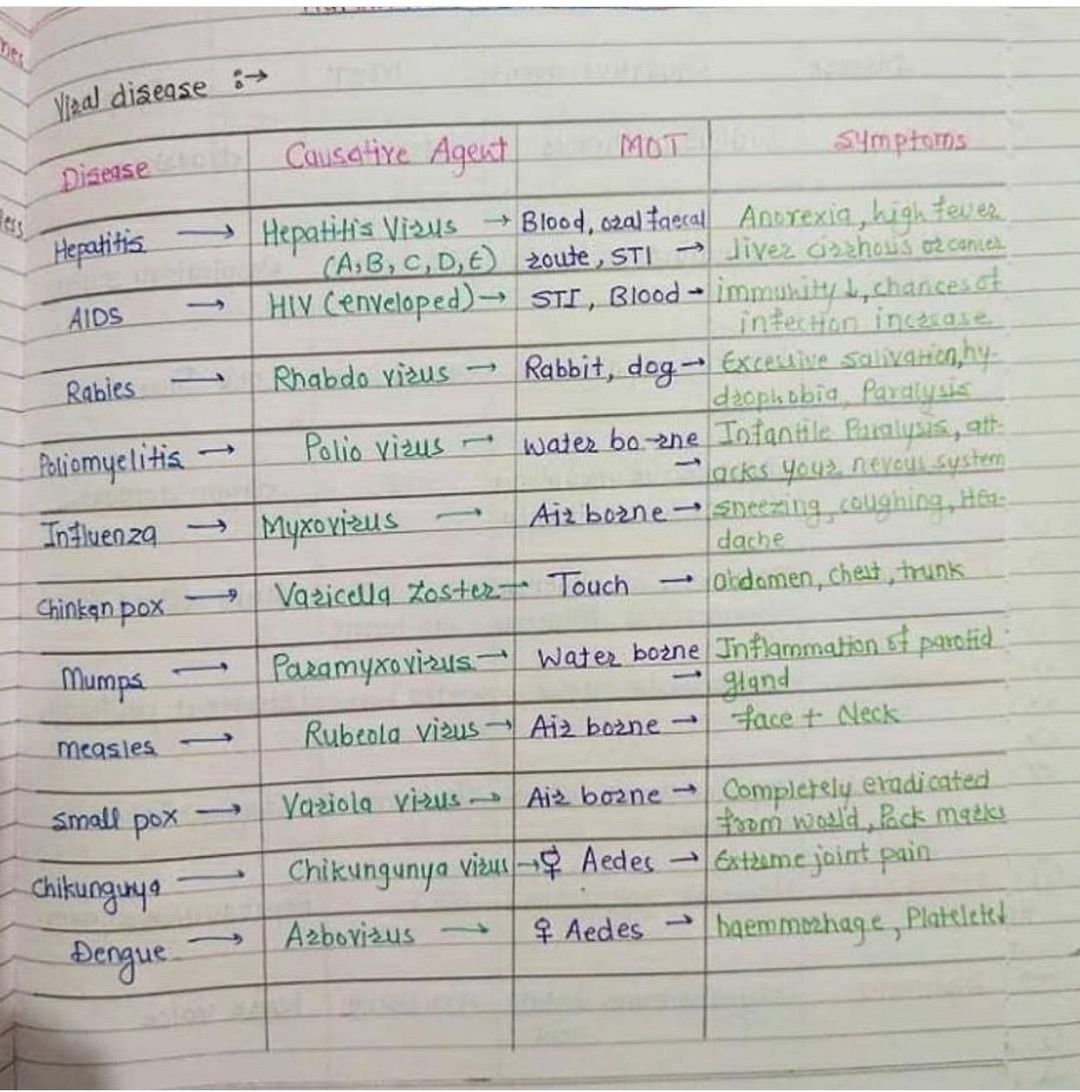 Viral disease :→
Disease | Causative Agent | MOT | Symptoms
Hepatitis → | Hepatitis Virus → | Blood, oral faecal | Anorexia, high fever
(A,B,C,D,E) | route, STI → | liver cirrhosis or cancer
AIDS → | HIV (enveloped) → | STI, Blood → | immunity ↓, chances of
infection increase
Rabies → | Rhabdo virus → | Rabbit, dog → | Excessive salivation, hy-
drophobia, Paralysis
Poliomyelitis → | Polio virus → | water bo-rne | Infantile Paralysis, att-
→ | acks your nevous system
Influenza → | Myxovirus → | Air borne → | sneezing, coughing, Hea-
dache
Chinkan pox → | Varicella Zoster → | Touch → | abdomen, chest, trunk
Mumps → | Paramyxovirus → | Water borne | Inflammation of parotid
→ | gland
measles → | Rubeola virus → | Air borne → | face + Neck
small pox → | Variola virus → | Air borne → | Completely eradicated
from world, Pack marks
Chikungunya → | Chikungunya virus → | ♀ Aedes → | Extreme joint pain
Dengue → | Arbovirus → | ♀ Aedes → | haemmorhage, Platelete↓